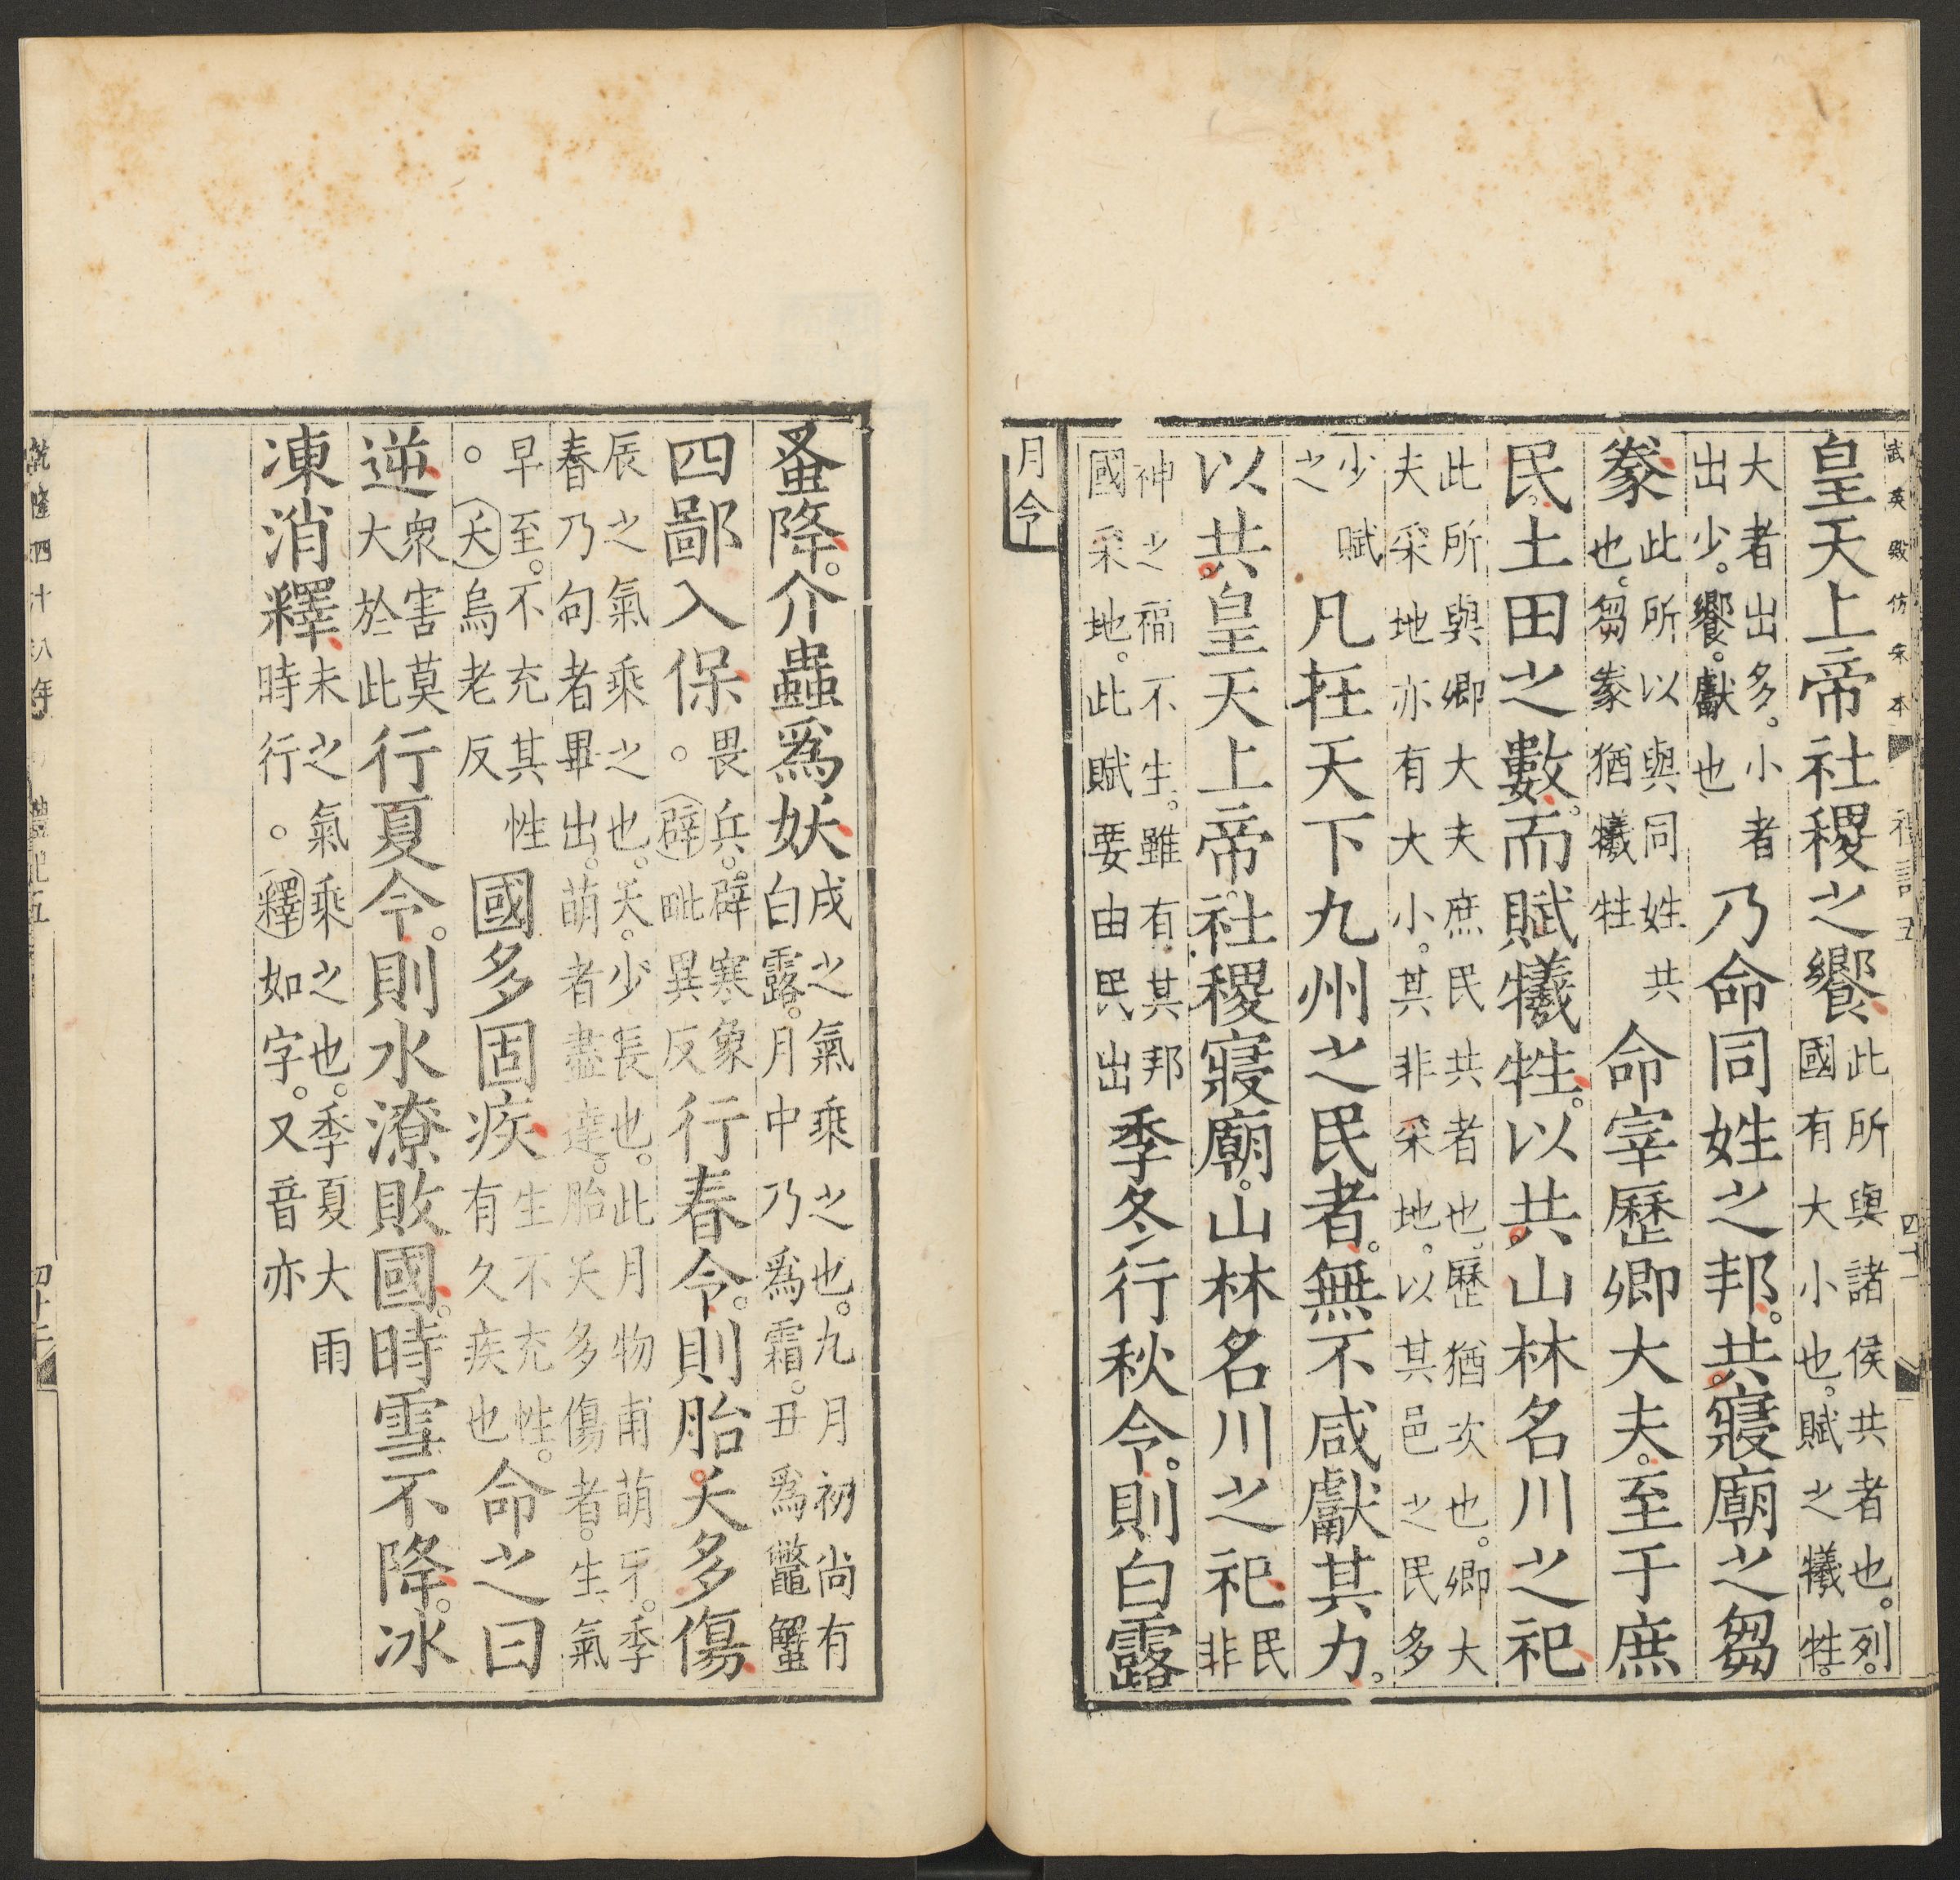 武英殿仿宋本 禮記五 四十一
皇天上帝社稷之饗此所與諸侯共者也。列國有大小也。賦之犧牲。
大者出多。小者出少。饗。獻也乃命同姓之邦。共寢廟之芻
豢此所以與同姓共也。芻豢猶犧牲命宰歷卿大夫。至于庶
民。土田之數。而賦犧牲。以共山林名川之祀
此所與卿大夫庶民共者也。歷猶次也。卿大夫采地亦有大小。其非采地。以其邑之民多
少賦之凡在天下九州之民者。無不咸獻其力。
以共皇天上帝。社稷寢廟。山林名川之祀民非
神之福不生。雖有其邦國采地。此賦要由民出季冬行秋令。則白露
月令
蚤降。介蟲爲妖戌之氣乘之也。九月初尚有白露。月中乃爲霜。丑爲鼈蟹
四鄙入保畏兵。辟寒象。辟毗異反行春令。則胎夭多傷
辰之氣乘之也。夭。少長也。此月物甫萌牙。季春乃句者畢出。萌者盡達。胎夭多傷者。生氣
早至。不充其性。夭烏老反國多固疾生不充性。有久疾也命之曰
逆衆害莫大於此行夏令。則水潦敗國。時雪不降。冰
凍消釋未之氣乘之也。季夏大雨時行。釋如字。又音亦
乾隆四十八年 禮記五 四十二